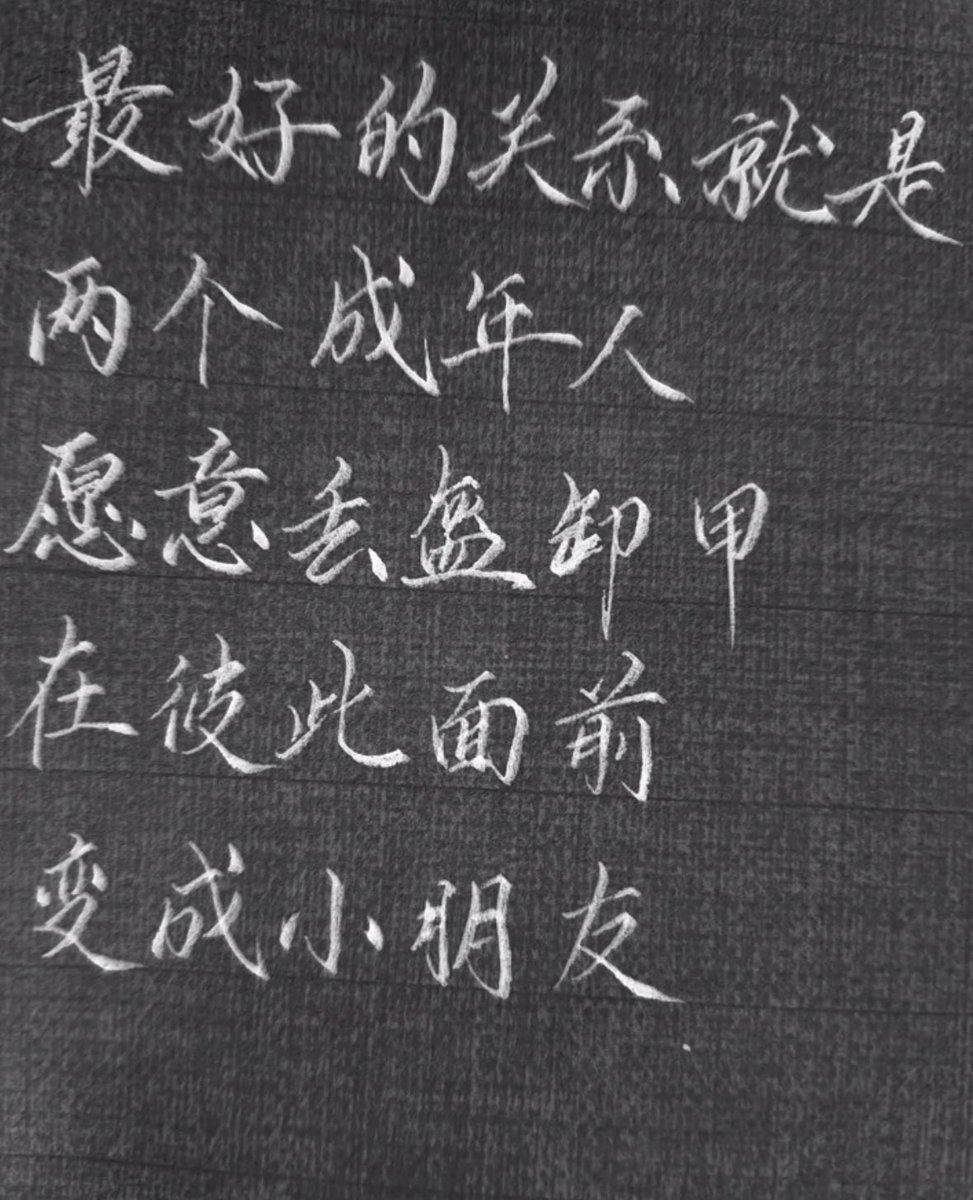 最好的关系就是
两个成年人
愿意丢盔卸甲
在彼此面前
变成小朋友